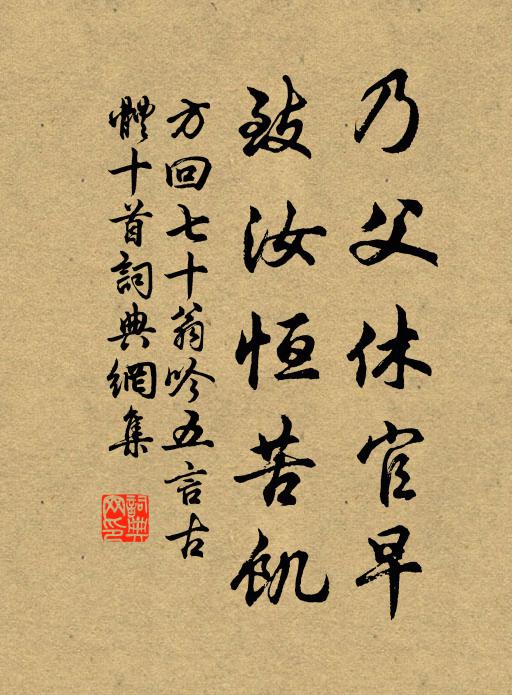 乃父休官早
致汝恒苦飢
方回七十翁吟五言古
體十首詞典網集
詞典
网印